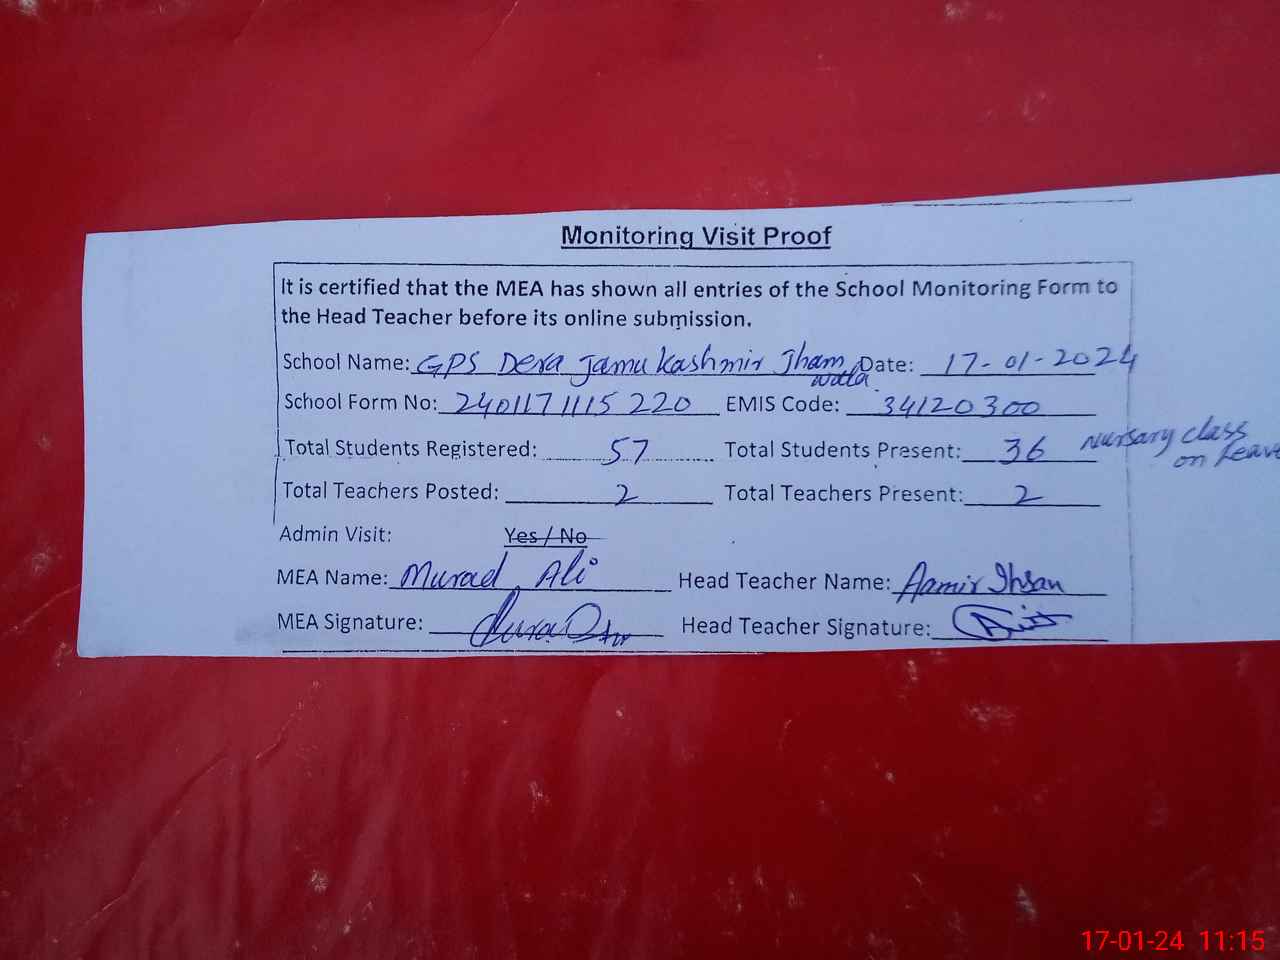 Monitoring Visit Proof
It is certified that the MEA has shown all entries of the School Monitoring Form to
the Head Teacher before its online submission.
School Name: GPS Dera Jamu Kashmir Jham Date: 17-01-2024
walla
School Form No: 2401171115220 EMIS Code: 34120300
Total Students Registered: 57 Total Students Present: 36 Nursary class
on Leave
Total Teachers Posted: 2 Total Teachers Present: 2
Admin Visit: Yes / No
MEA Name: Murad Ali Head Teacher Name: Aamir Ihsan
MEA Signature: Head Teacher Signature:
17-01-24 11:15